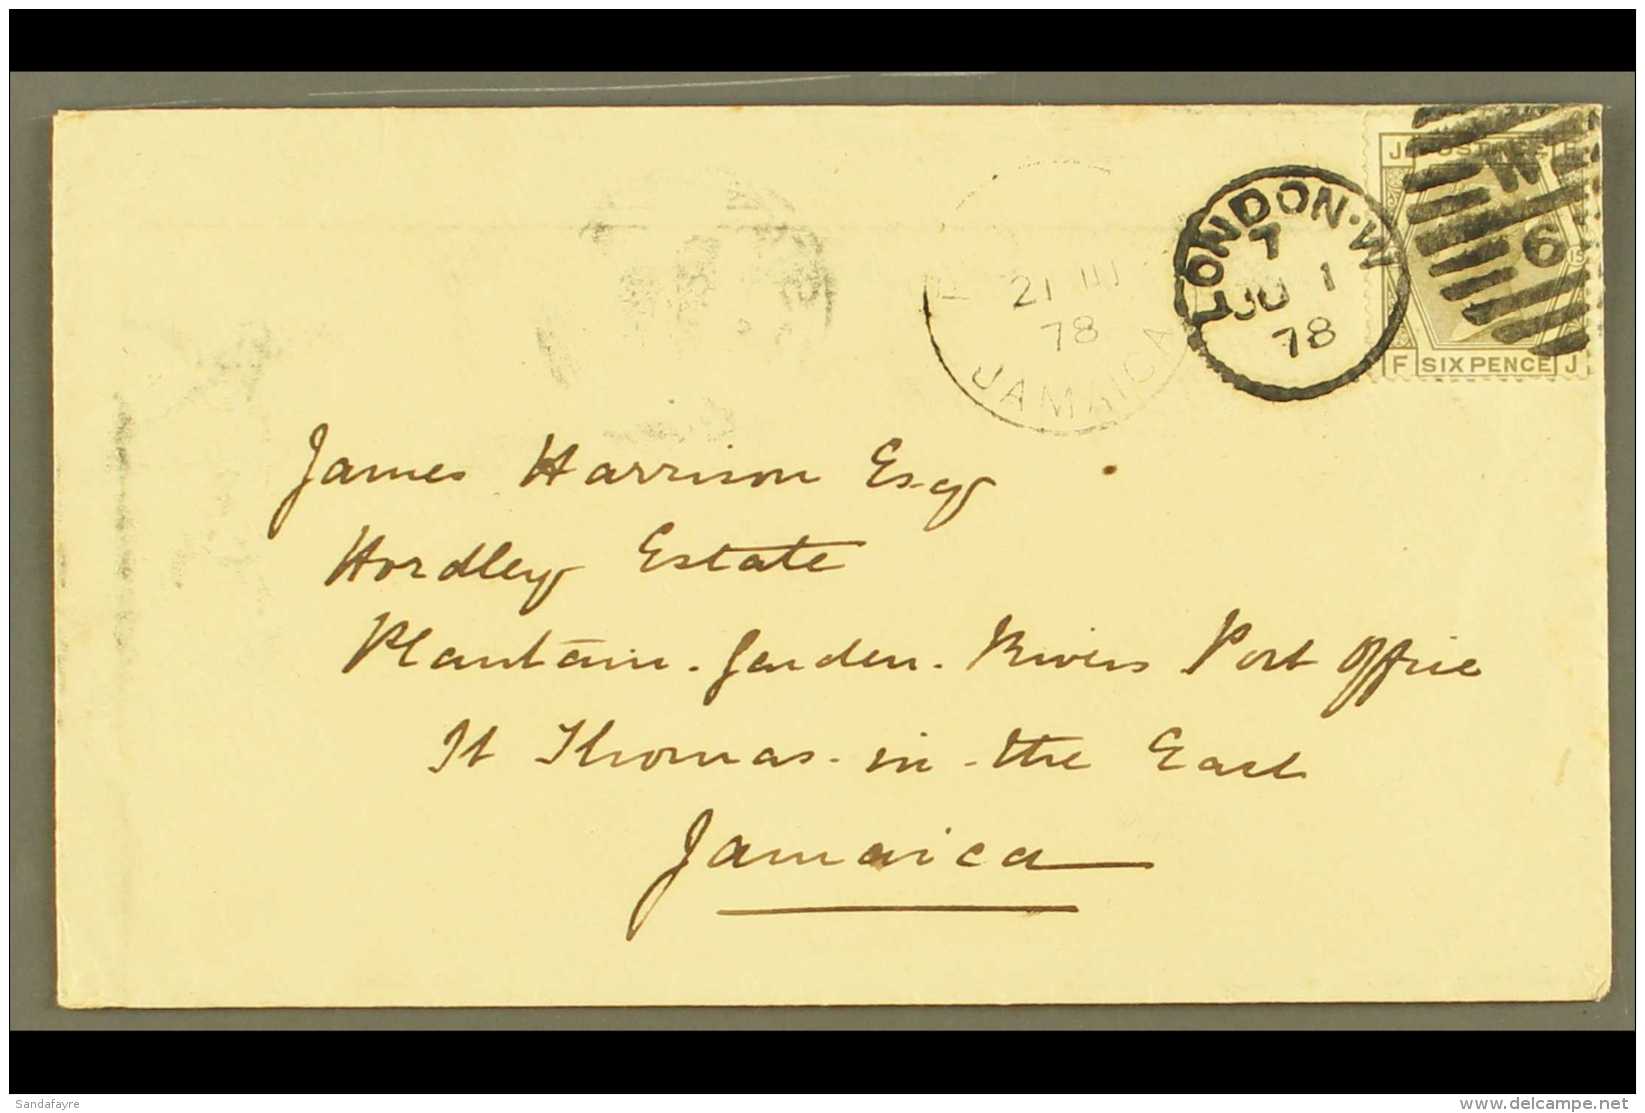 J POSTAGE F
W
6
15
F SIX PENCE J
LONDON·W
7
JU 1
78
21 JU
78
JAMAICA
James Harrison Esqr
Hordley Estate
Plantain-Garden-Rivers Post Office
St Thomas-in-the East
Jamaica
Sandafayre
www.delcampe.net